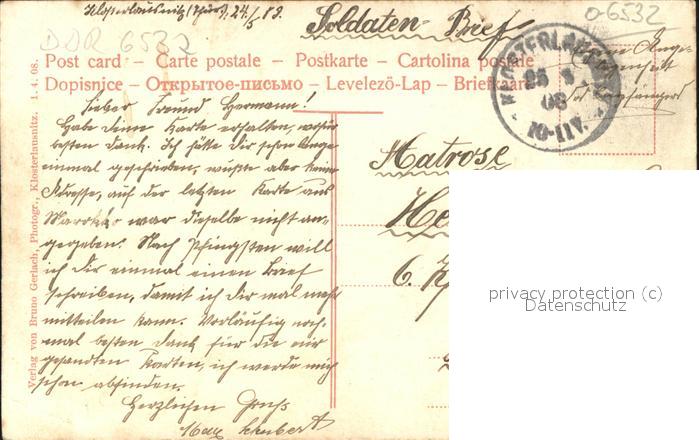 Klosterlausnitz (Thür), 24/5 08.
Soldaten-Brief
0-6532
DDR 6532
Post card — Carte postale — Postkarte — Cartolina postale
Dopisnice — Открытое-письмо — Levelező-Lap — Briefkaart
KLOSTERLAUSNITZ
25 5
08
10-11V.
Eigene Angelegenheit
des Empfängers
Lieber Freund Hermann!
Habe deine Karte erhalten, wofür
besten Dank. Ich hätte dir schon lange
einmal geschrieben, wußte aber keine
Adresse, auf der letzten Karte aus
Marokko war dieselbe nicht an-
gegeben. Nach Pfingsten will
ich Dir einmal einen Brief
schreiben, damit ich dir mal mehr
mitteilen kann. Vorläufig noch-
mal besten Dank für die mir
gesandten Karten, ich werde mich
schon abfinden.
Herzlichen Gruß
Max Schubert
Matrose
He
6. K
Verlag von Bruno Gerlach, Photogr., Klosterlausnitz. 1. 4. 08.
privacy protection (c)
Datenschutz